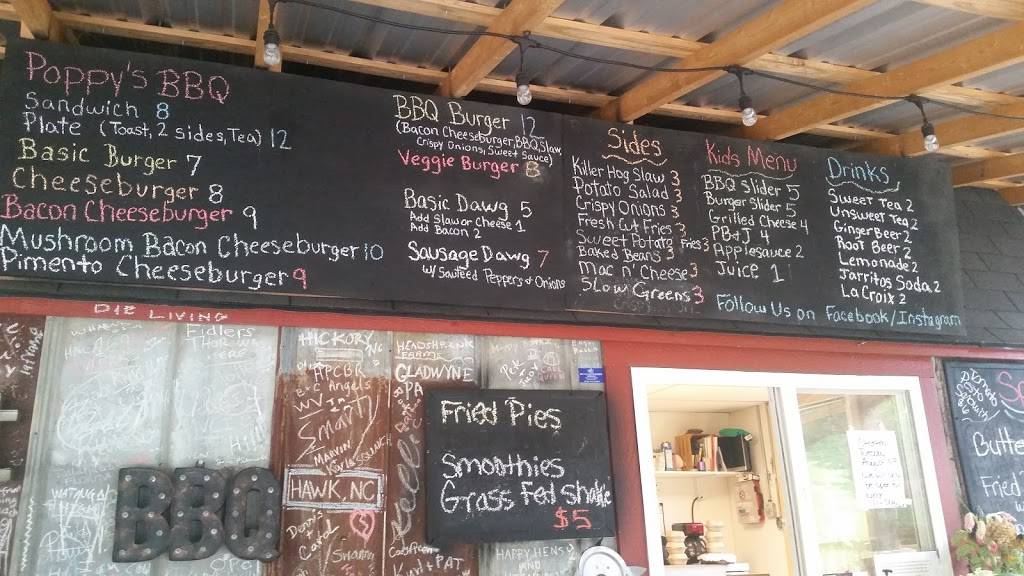 Poppy's BBQ
Sandwich 8
Plate (Toast, 2 sides, Tea) 12
Basic Burger 7
Cheeseburger 8
Bacon Cheeseburger 9
Mushroom Bacon Cheeseburger 10
Pimento Cheeseburger 9
BBQ Burger 12
(Bacon Cheeseburger, BBQ, Slaw
Crispy Onions, Sweet Sauce)
Veggie Burger 8
Basic Dawg 5
Add Slaw or Cheese 1
Add Bacon 2
Sausage Dawg 7
w/ Sauteed Peppers & Onions
Sides
Killer Hog Slaw 3
Potato Salad 3
Crispy Onions 3
Fresh Cut Fries 3
Sweet Potato Fries 3
Baked Beans 3
Mac n' Cheese 3
Slow Greens 3
Kids Menu
BBQ Slider 5
Burger Slider 5
Grilled Cheese 4
PB+J 4
Applesauce 2
Juice 1
Drinks
Sweet Tea 2
Unsweet Tea 2
Ginger Beer 2
Root Beer 2
Lemonade 2
Jarritos Soda 2
La Croix 2
Follow Us on Facebook/Instagram
DIE LIVING
Eidlers
HICKORY NC
Angels
WV
HAWK, NC
GLADWYNE
PA
Kurt + PAT
HAPPY HENS
BBQ
Fried Pies
Smoothies
Grass Fed Shake
$5
Butte
Fried